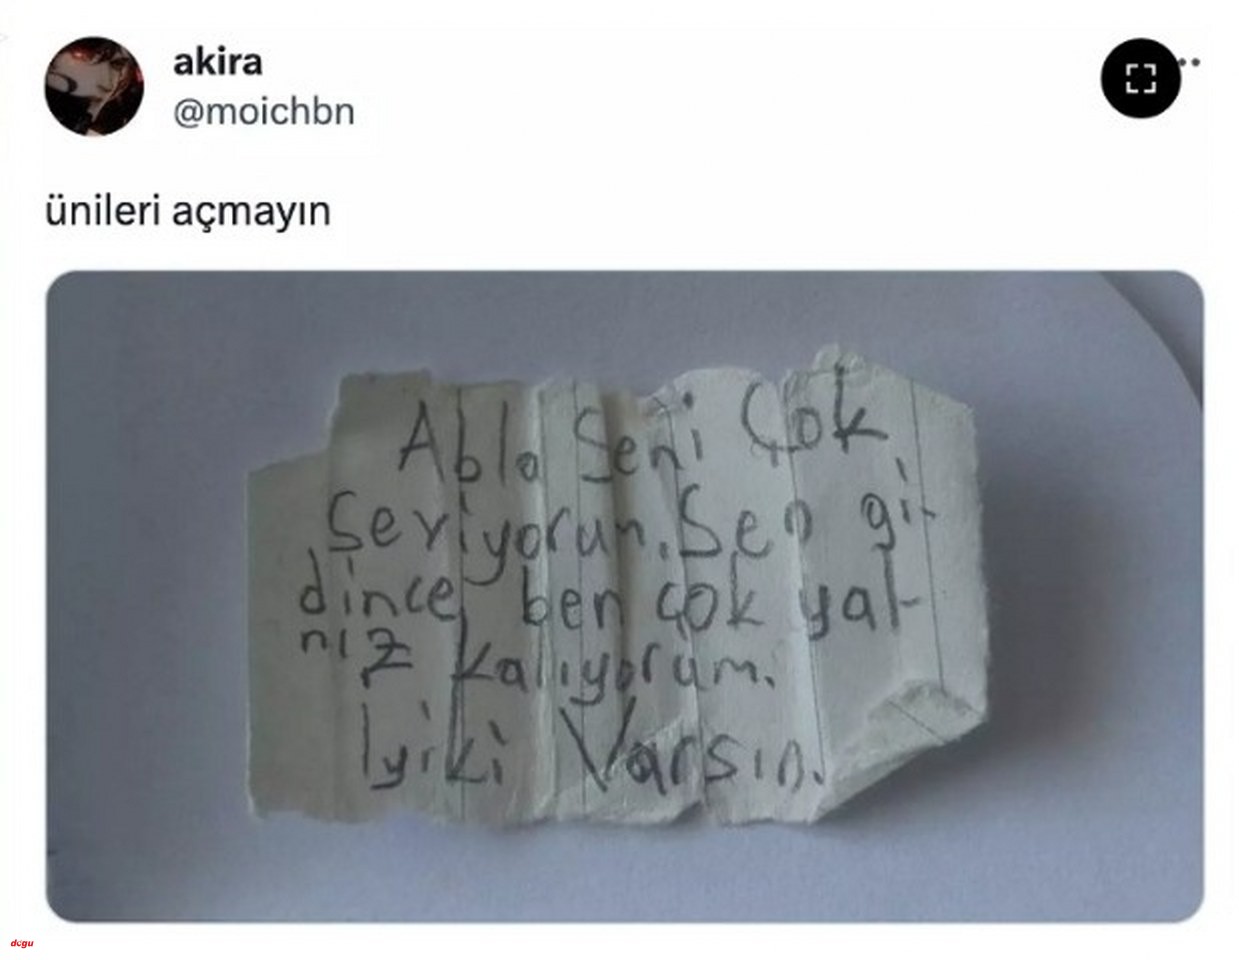 akira
@moichbn
ünileri açmayın
Abla Seni Çok
Seviyorum. Sen gi-
dince ben çok yal-
nız kalıyorum.
İyiki Varsın.
dogu